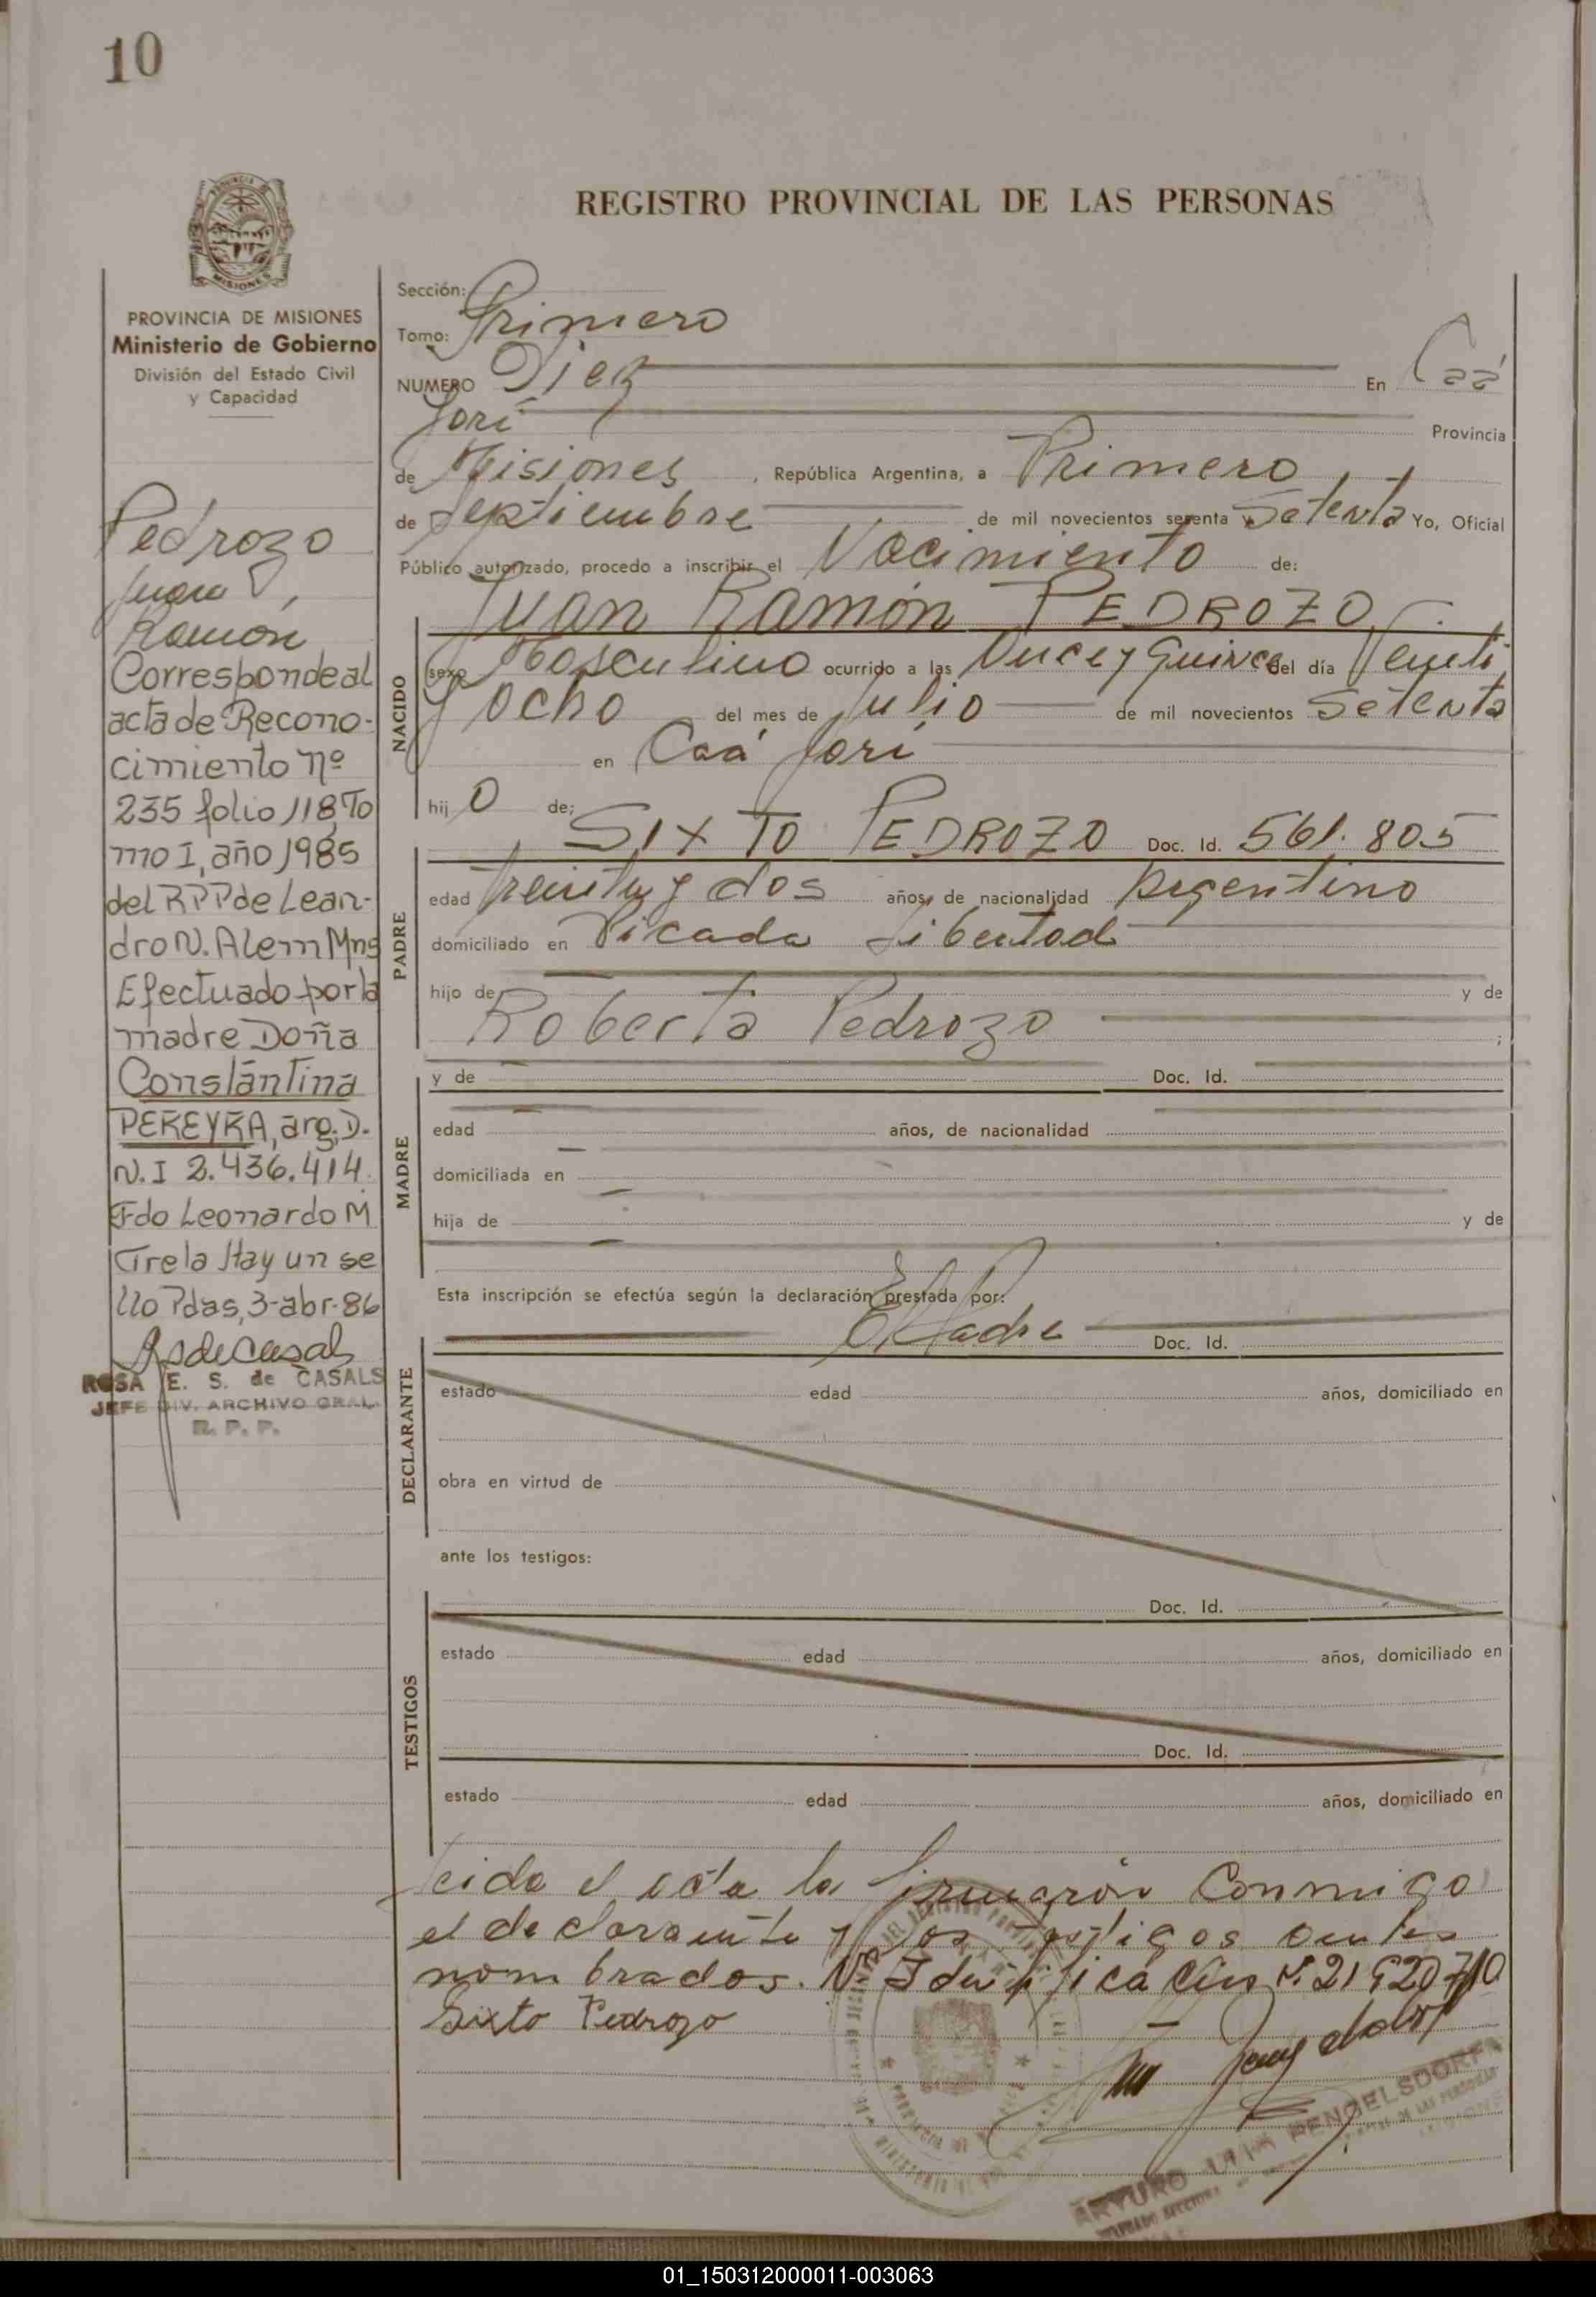 10
REGISTRO PROVINCIAL DE LAS PERSONAS
PROVINCIA DE MISIONES
Ministerio de Gobierno
División del Estado Civil
y Capacidad
Pedrozo
Juan
Ramon
Corresponde al
acta de Recono-
cimiento nº
235 folio 118, To
mo I, año 1985
del RPP de Lean-
dro N. Alem Mns
Efectuado por la
madre Doña
Constantina
PEREYRA, arg. D.
N. I 2.436.414.
Fdo Leonardo M
Trela Hay un se
llo Pdas, 3-abr-86
RsdeCasals
ROSA E. S. de CASALS
JEFE DIV. ARCHIVO GRAL.
R. P. P.
Sección:
Tomo: Primero
NUMERO Diez En Caá
Yarí Provincia
de Misiones, República Argentina, a Primero
de Septiembre de mil novecientos sesenta y Setenta Yo, Oficial
Público autorizado, procedo a inscribir el Nacimiento de:
Juan Ramón PEDROZO
NACIDO
sexo Masculino ocurrido a las Once y Quince del día Veinti
ocho del mes de Julio de mil novecientos Setenta
en Caá Yarí
hijo de:
SIXTO PEDROZO Doc. Id. 561.805
PADRE
edad treinta y dos años, de nacionalidad Argentino
domiciliado en Picada Libertad
hijo de y de
Roberta Pedrozo ;
MADRE
y de Doc. Id.
edad años, de nacionalidad
domiciliada en
hija de y de
Esta inscripción se efectúa según la declaración prestada por:
El Padre Doc. Id.
DECLARANTE
estado edad años, domiciliado en
obra en virtud de
ante los testigos:
Doc. Id.
TESTIGOS
estado edad años, domiciliado en
Doc. Id.
estado edad años, domiciliado en
Leida el acta la firmarón Conmigo
el declarante y los testigos antes
nombrados. Nº Identificación Nº 21920710
Sixto Pedrozo
ARTURO PENGELSDORF
01_150312000011-003063